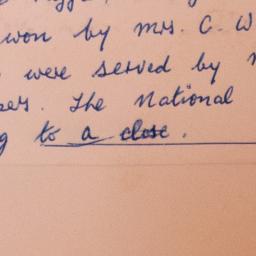 won by mrs. C. W
were served by
. The National
to a close.